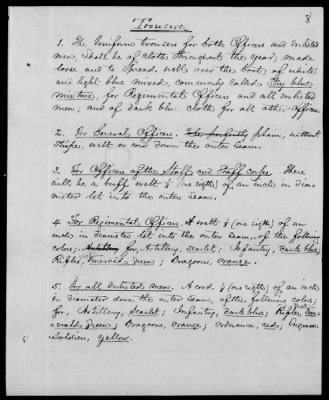 8
Trousers.
1. The Uniform trousers for both Officers and enlisted
men, shall be of cloth throughout the year; made
loose and to spread well over the boot; of white
and light blue mixed, commonly called Sky blue
mixture, for Regimental Officers and all enlisted
men; and of dark blue cloth for all other officers.
2. For General Officers. plain, without
stripe, welt or cord down the outer seam.
3. For Officers of the Staff and Staff corps. There
will be a buff welt ⅛ (one eighth) of an inch in dia-
meter let into the outer seam.
4. For Regimental Officers. A welt ⅛ (one eighth) of an
inch in diameter let into the outer seam, of the following
colors; Artillery for Artillery, scarlet; Infantry, dark blue;
Rifles, Emerald green; Dragoons, orange.
5. For all Enlisted men. A cord ⅛ (one eighth) of an inch
in diameter down the outer seam, of the following colors;
for, Artillery, Scarlet; Infantry, dark blue; Rifles, Em-
erald green; Dragoons, orange; Ordnance, red; Engineer
Soldiers, yellow.